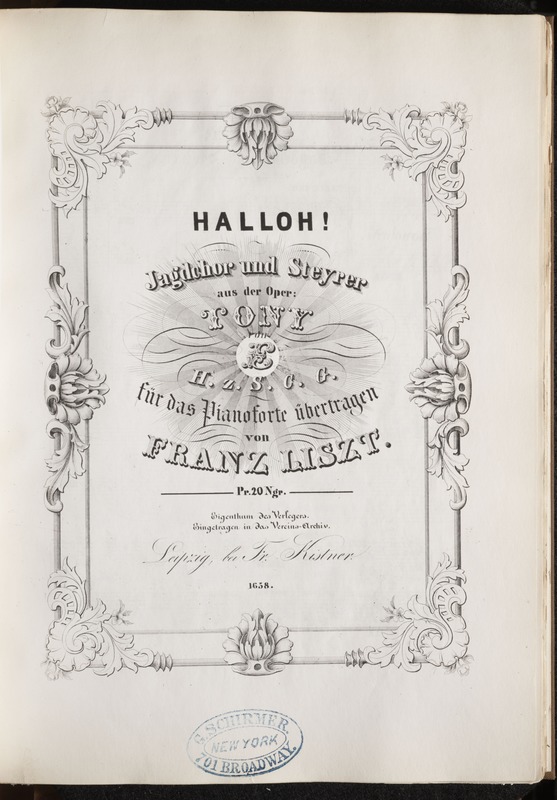 HALLOH!
Jagdchor und Steyrer
aus der Oper:
TONY
von
E
H. z. S. C. G.
für das Pianoforte übertragen
von
FRANZ LISZT.
Pr. 20 Ngr.
Eigenthum des Verlegers.
Eingetragen in das Vereins-Archiv.
Leipzig, bei Fr. Kistner.
1658.
G. SCHIRMER.
NEW YORK
701 BROADWAY.